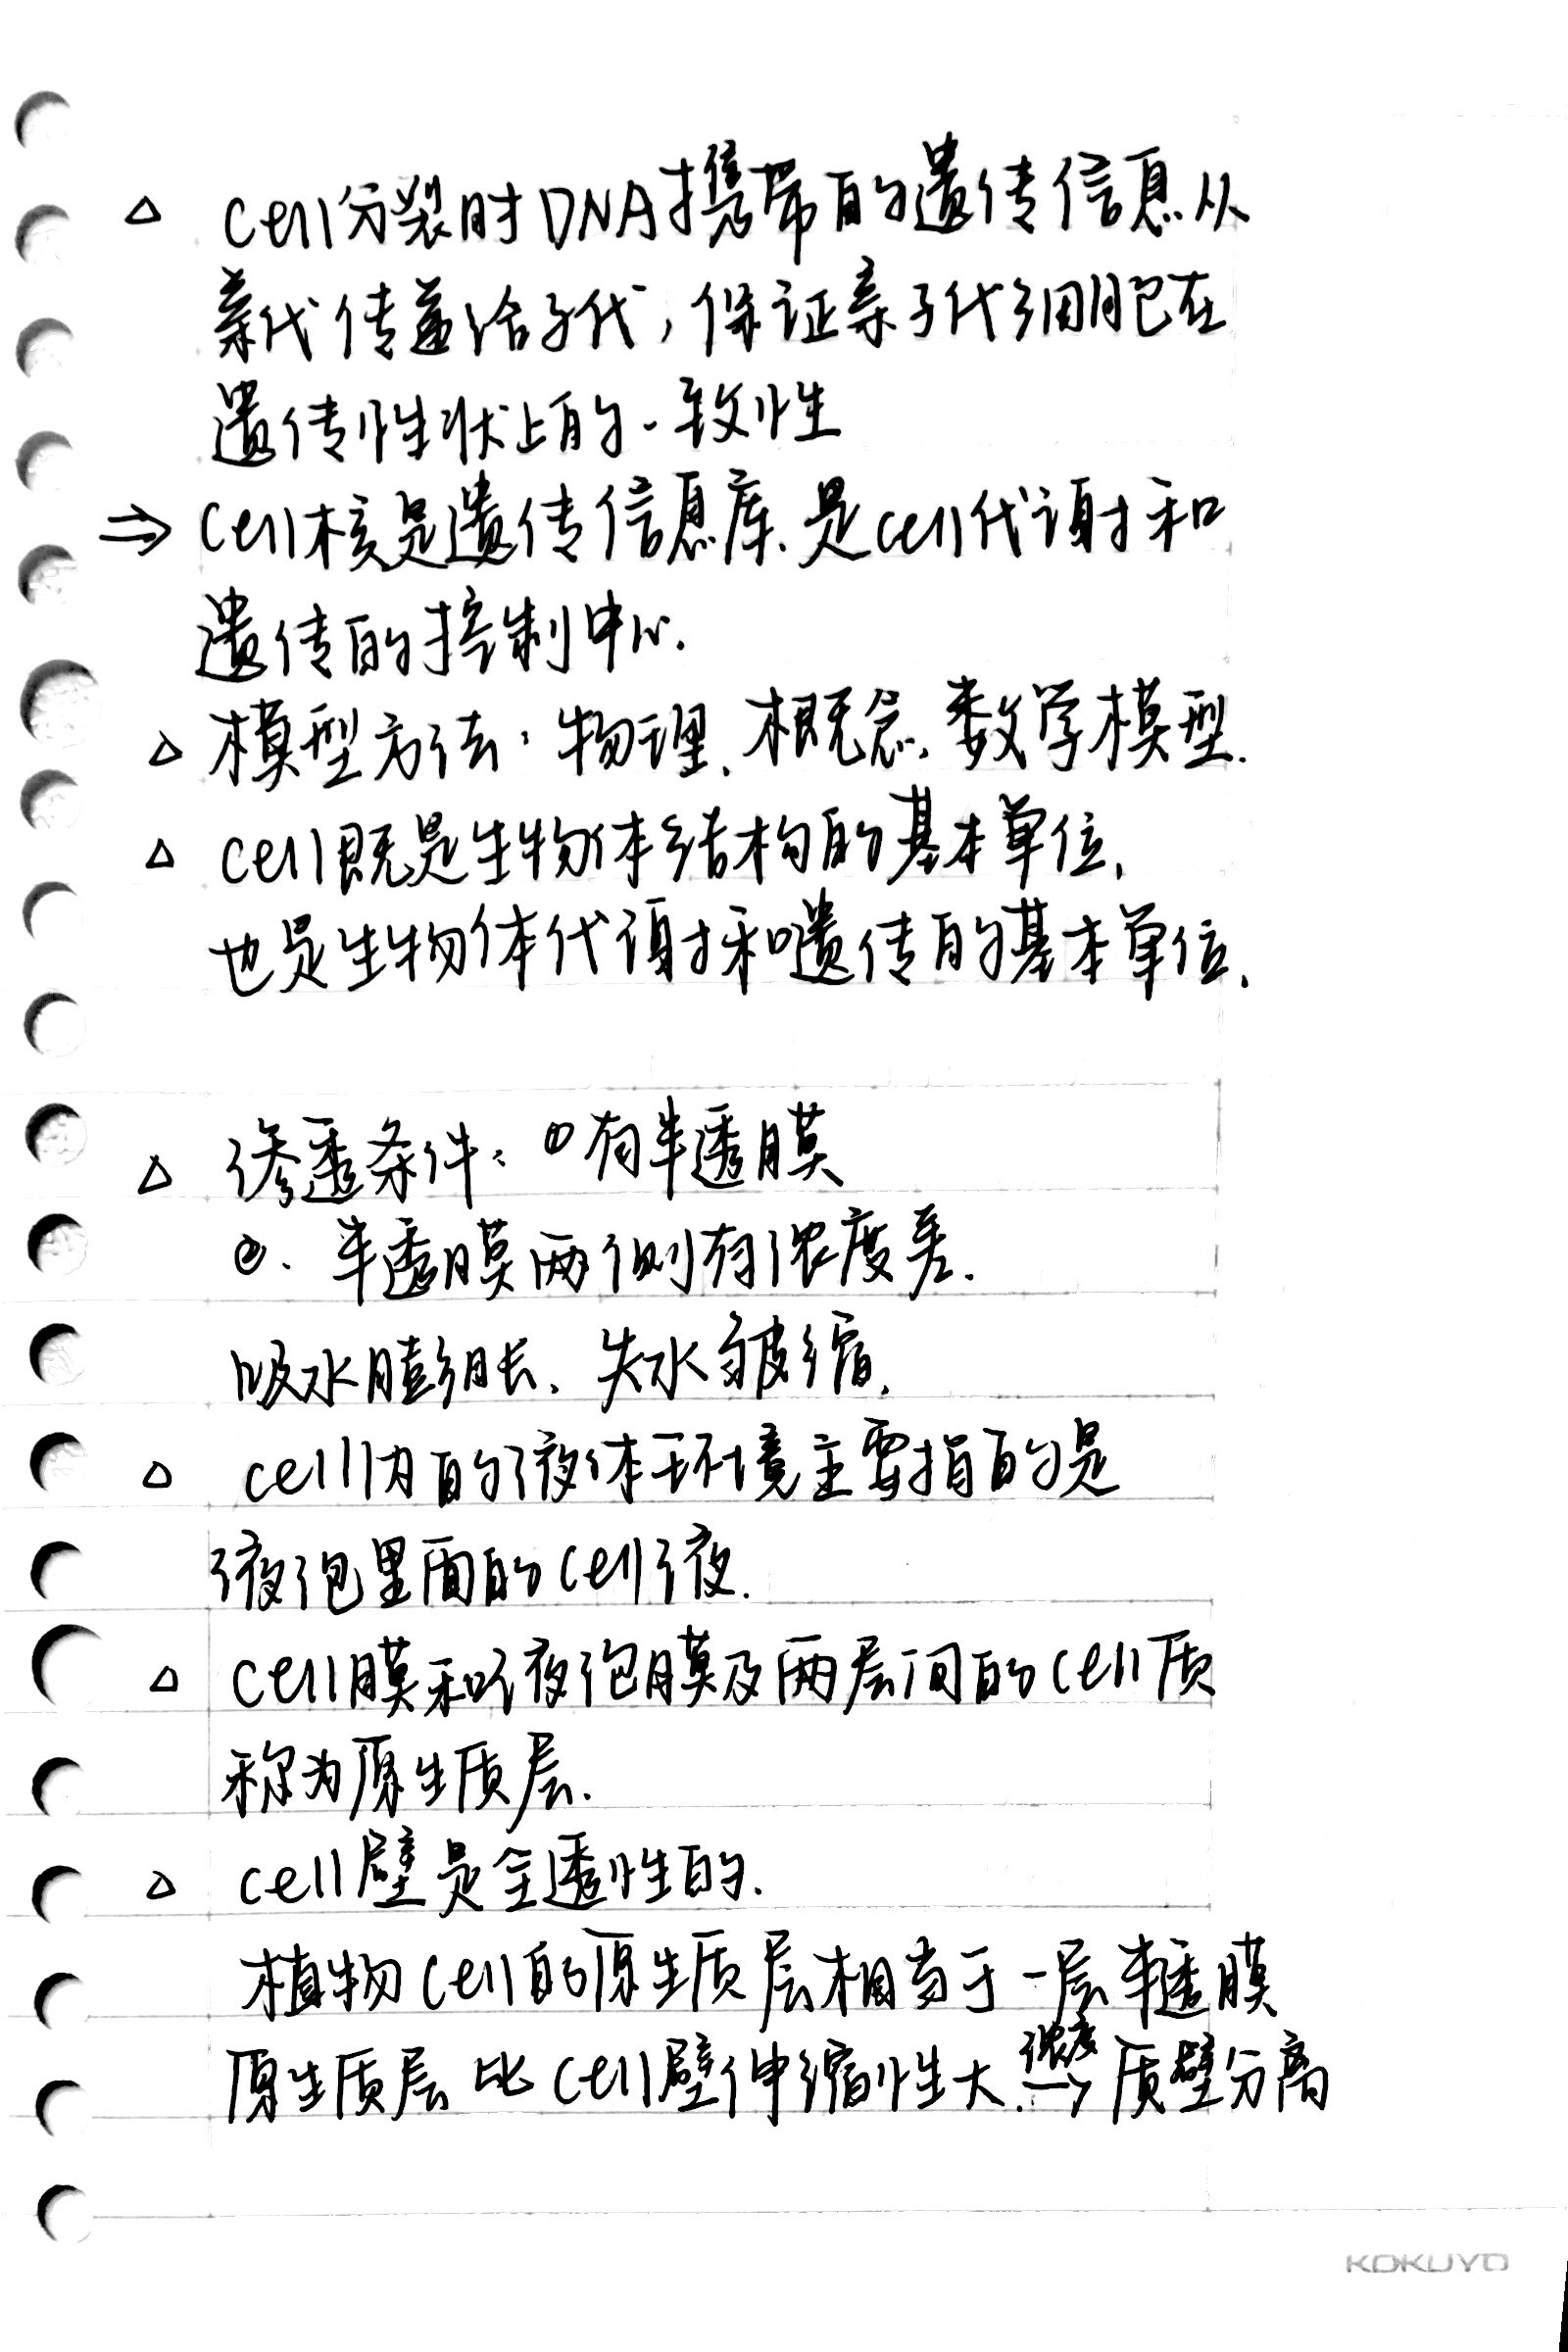 △ cell分裂时DNA携带的遗传信息从
亲代传递给子代，保证亲子代细胞在
遗传性状上的一致性
⇒ cell核是遗传信息库、是cell代谢和
遗传的控制中心.
△ 模型方法：物理、概念、数学模型.
△ cell既是生物体结构的基本单位，
也是生物体代谢和遗传的基本单位.
△ 渗透条件：①有半透膜
②. 半透膜两侧有浓度差.
吸水膨胀、失水皱缩.
△ cell内的液体环境主要指的是
液泡里面的cell液.
△ cell膜和液泡膜及两层间的cell质
称为原生质层.
△ cell壁是全透性的.
植物cell的原生质层相当于一层半透膜
原生质层比cell壁伸缩性大 浓度→ 质壁分离
KOKUYO